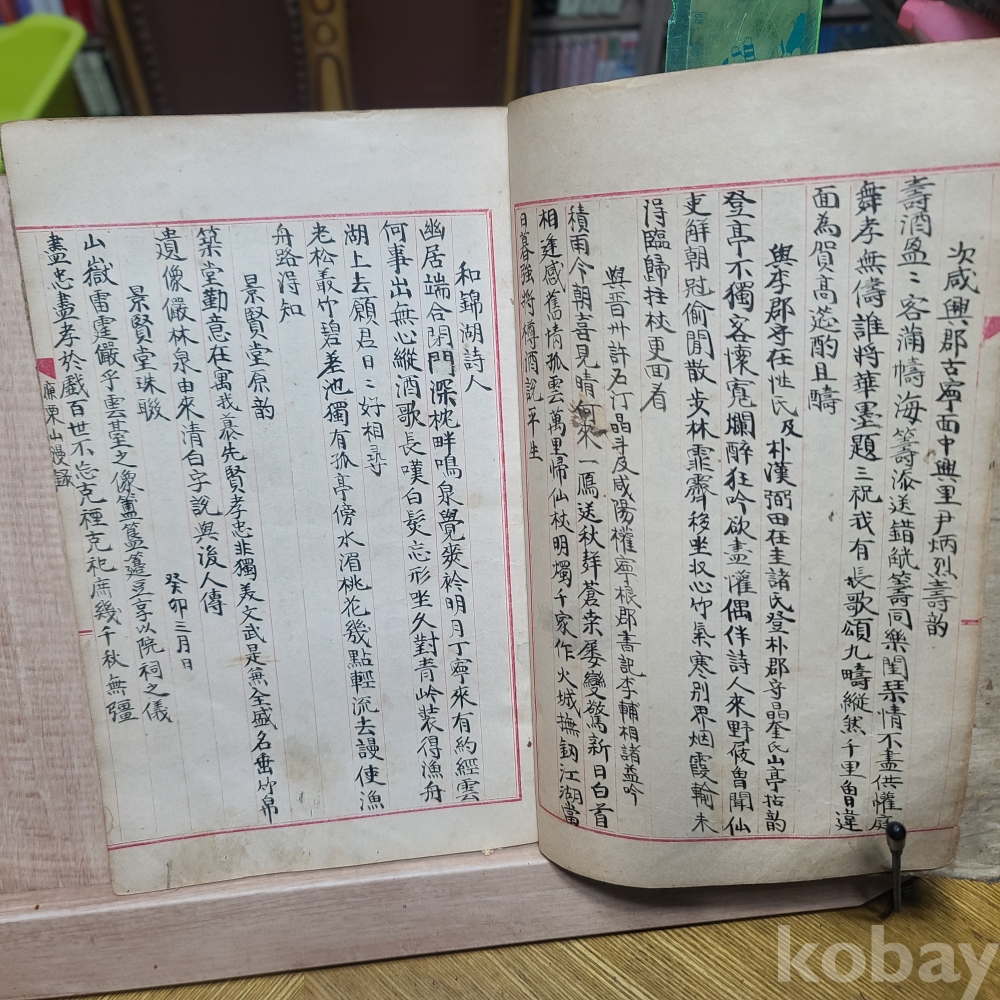 次咸興郡古寧面中興里尹炳烈壽韵
壽酒盈〻客滿幬海籌添送錯觥籌同樂閨琹情不盡供懽庭
舞孝無儔誰將華墨題三祝我有長歌頌九疇縱然千里曾違
面為賀高筵酌且疇
與李郡守任性氏及朴漢弼田在圭諸氏登朴郡守晶奎氏山亭拈韵
登亭不獨客懷寬爛醉狂吟欲盡懽偶伴詩人來野伎曾聞仙
吏解朝冠偷閒散步林霏霽移坐収心竹氣寒别界烟霞輸未
得臨歸拄杖更面看
與晋州許石汀晶斗及咸陽權寧根郡書記李輔相諸益吟
積雨今朝喜見晴 來一鴈送秋群蒼桒屡變驚新日白首
相逢感舊情孤雲萬里帰仙杖明燭千家作火城撫釼江湖當
日暮強将樽酒說平生
和錦湖詩人
幽居端合閉門深枕畔鳴泉覺爽衿明月丁寧來有約經雲
何事出無心縱酒歌長嘆白髮忘形坐久對青岭装得漁舟
湖上去願君日〻好相尋
老松義竹碧差池獨有孤亭傍水湄桃花幾點輕流去謾使漁
舟路得知
景賢堂原韵
築堂勤意在寓我袞先賢孝忠非獨美文武是無全盛名垂竹帛
遺像儼林泉由來清白字說與後人傳
景賢堂珠聮 癸卯三月日
山嶽雷霆儼乎雲䑓之像簠簋籩豆享以院祠之儀
盡忠盡孝於戲百世不忘克禋克祀庶幾千秋無彊
栗山漫錄
kobay